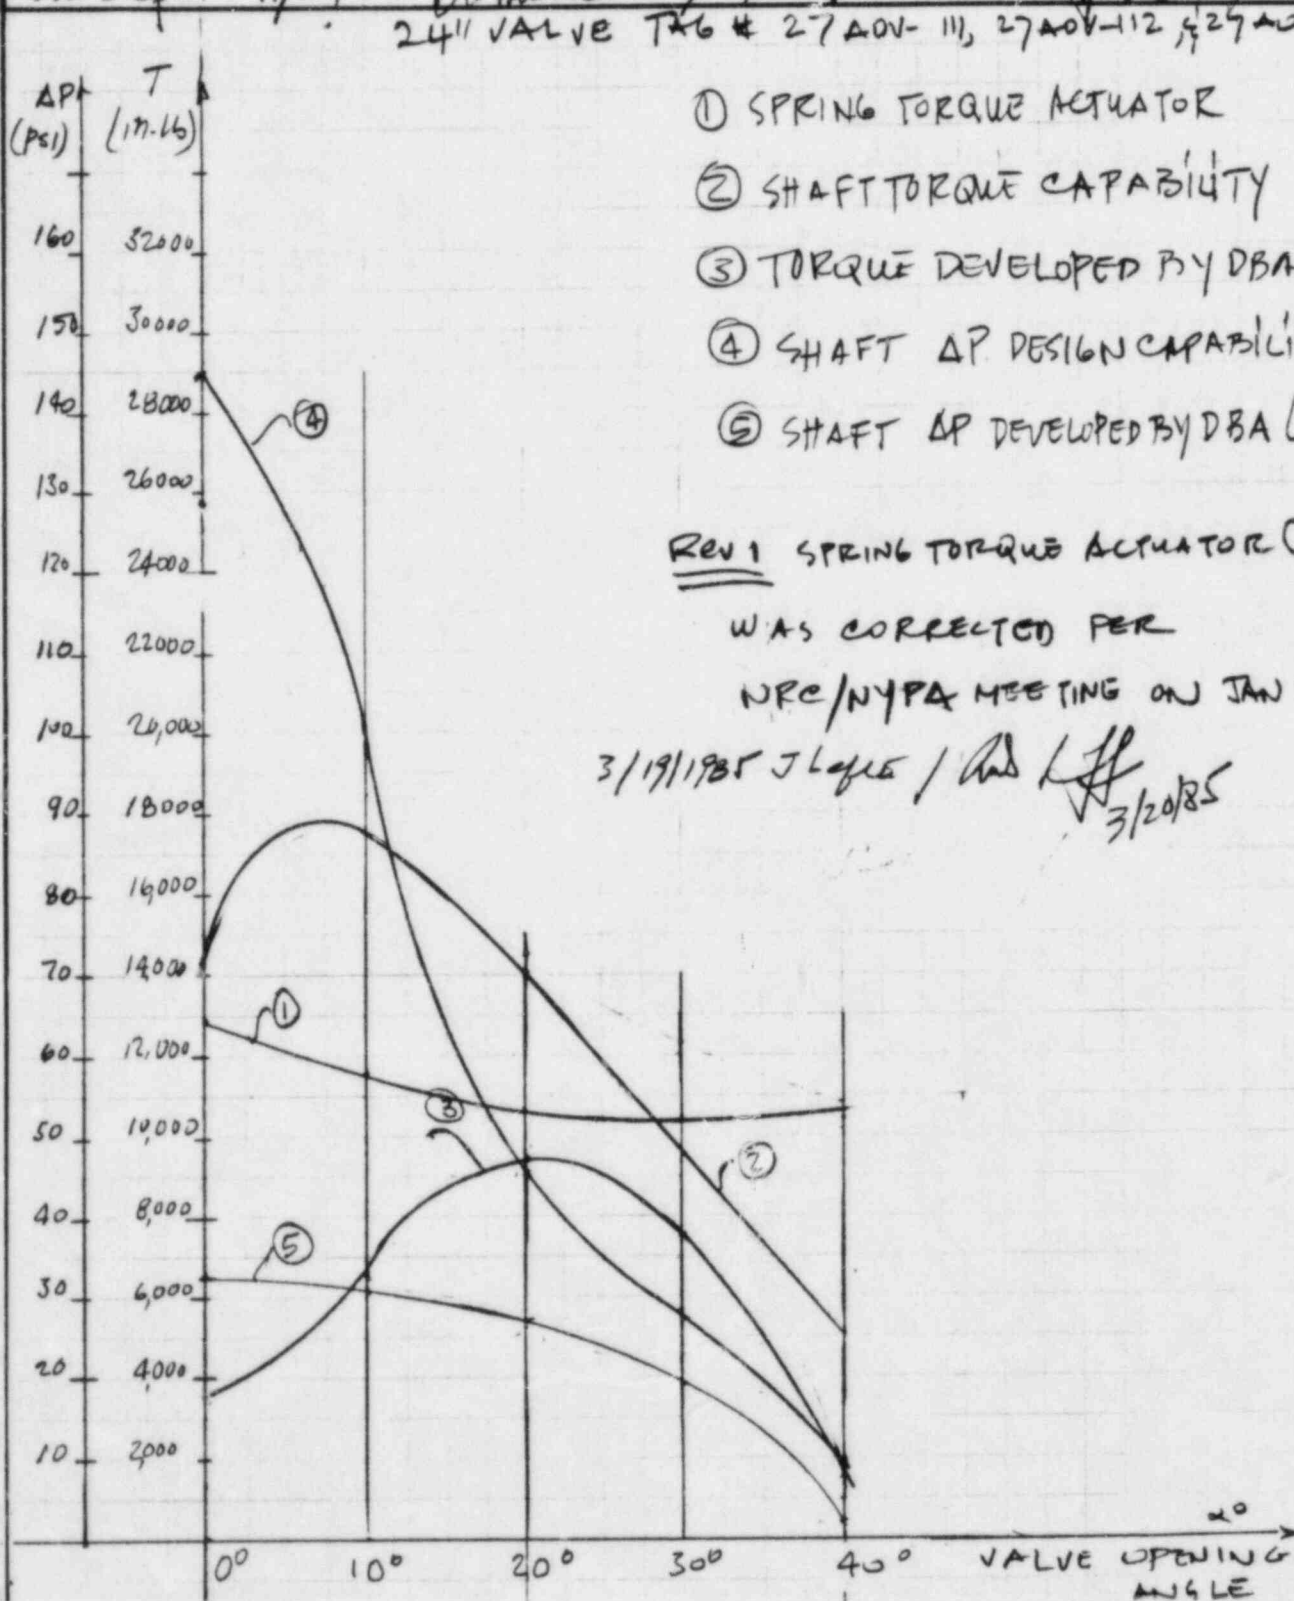 24" VALVE TAG # 27 AOV-111, 27AOV-112,
ΔP T
(PSI) (in-lb)
① SPRING TORQUE ACTUATOR
② SHAFT TORQUE CAPABILITY
③ TORQUE DEVELOPED BY DBA
④ SHAFT ΔP DESIGN
⑤ SHAFT ΔP DEVELOPED BY DBA (
Rev 1 SPRING TORQUE ACTUATOR (
WAS CORRECTED PER
NRC/NYPA MEETING ON JAN
3/19/1985 J
3/20/85
160 32000
150 30000
140 28000
130 26000
120 24000
110 22000
100 20,000
90 18000
80 16,000
70 14,000
60 12,000
50 10,000
40 8,000
30 6,000
20 4,000
10 2,000
④
①
③
②
⑤
α°
0° 10° 20° 30° 40° VALVE OPENING
ANGLE